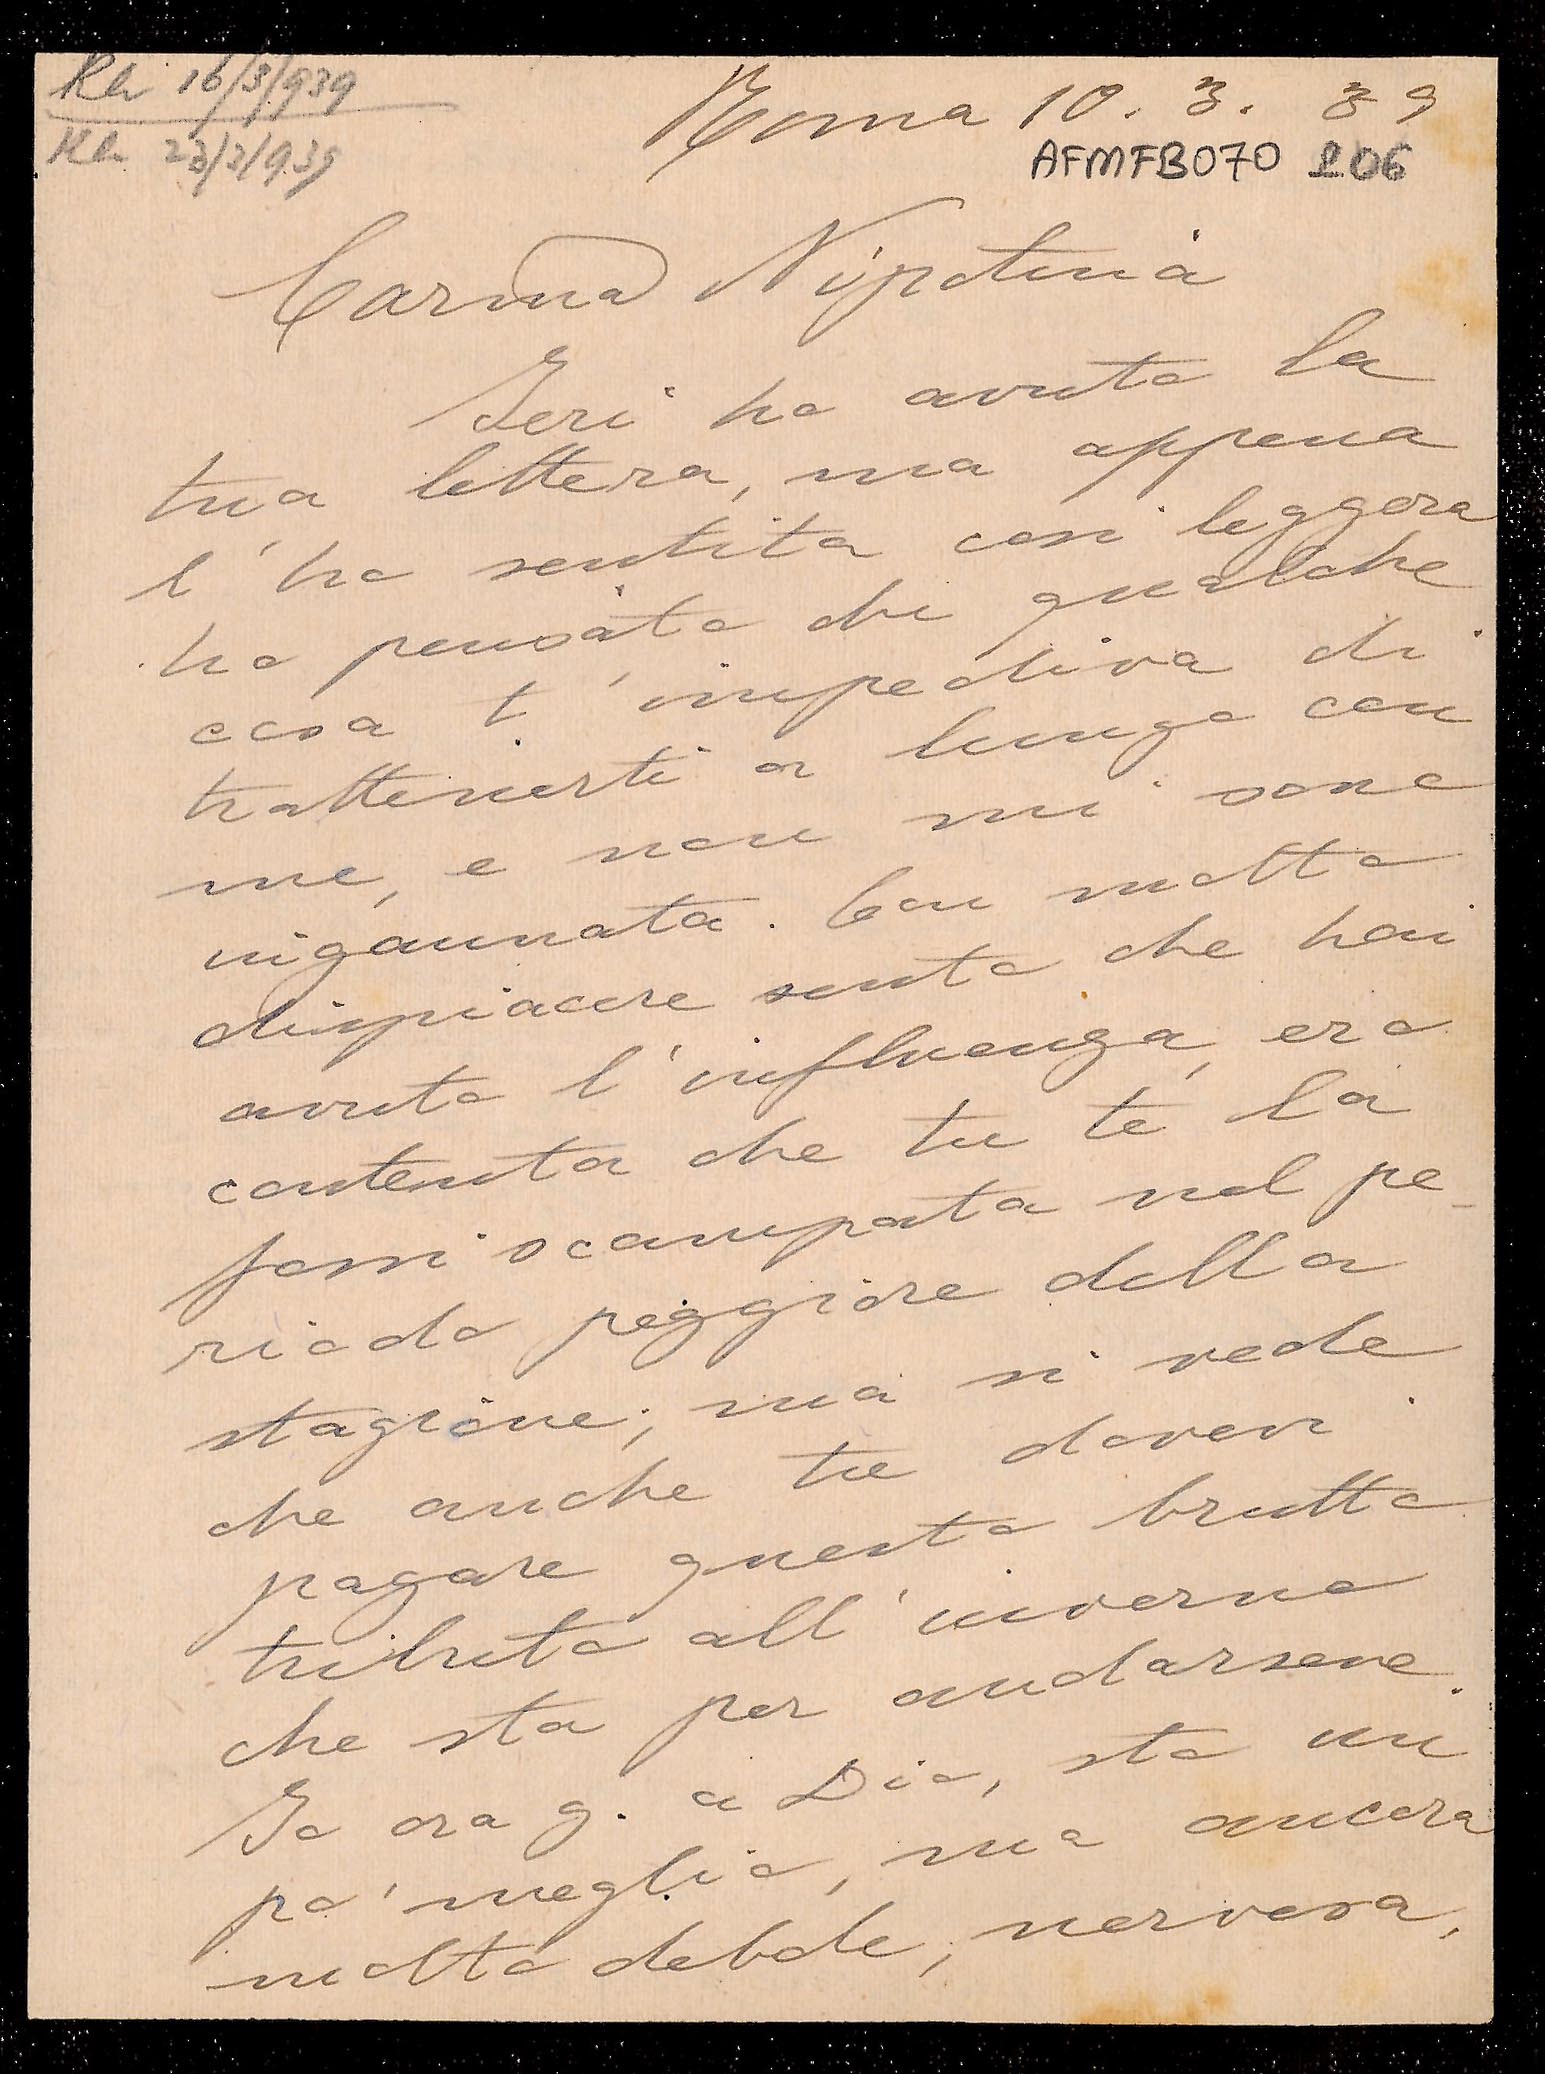 Rh 16/3/939
Rh 23/3/939
Roma 10. 3. 39
AFMFB070 206
Carma Nipotina
Ieri ho avuto la
tua lettera, ma appena
l'ho sentita cosi leggera
ho pensato che qualche
cosa t'impediva di
trattenerti a lungo con
me, e non mi sono
ingannata. Con molto
dispiacere sento che hai
avuto l'influenza, ero
contenta che tu te la
fossi scampata nel pe-
riodo peggiore della
stagione; ma si vede
che anche tu dovevi
pagare questo brutto
tributo all'inverno
che sta per andarsene.
Io ora g. a Dio, sto un
po' meglio, ma ancora
molto debole, nervosa,